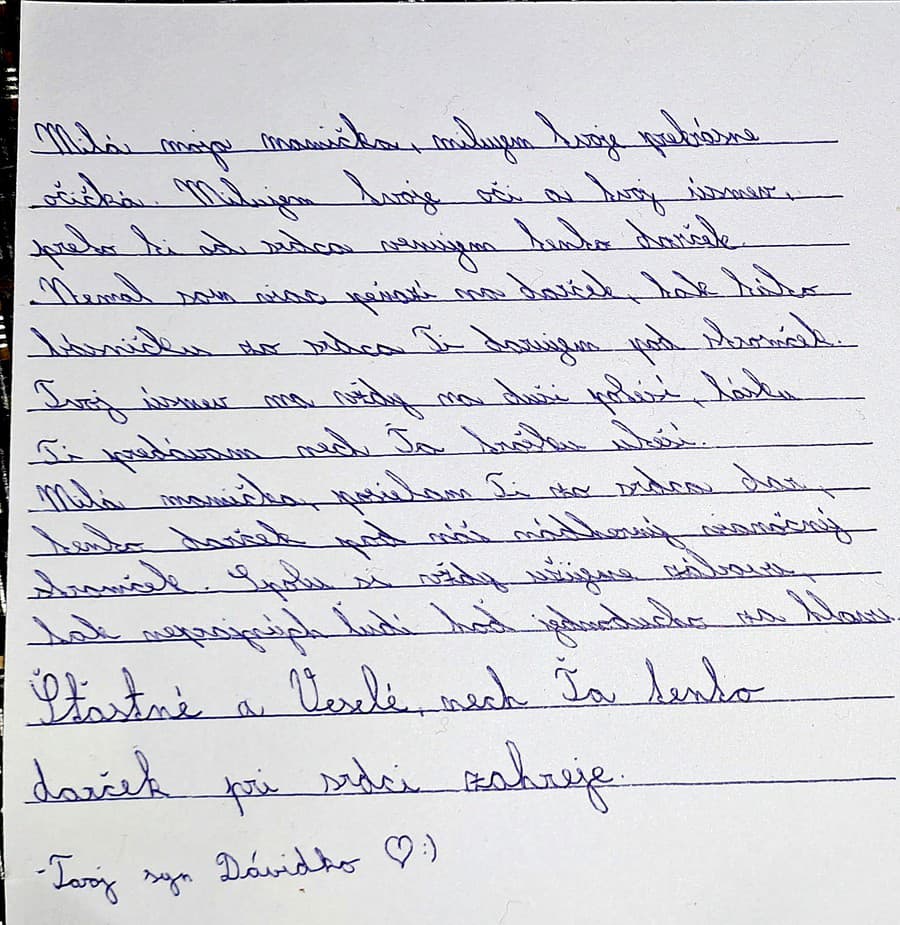 Milá moja mamička, milujem tvoje prekrásne
očičká. Milujem tvoje oči a tvoj úsmev,
preto ti od srdca venujem tento darček.
Nemal som viac peňazí na darček, tak túto
básničku zo srdca Ti darujem pod stromček.
Tvoj úsmev ma vždy na duši poteší, lásku
Ti predávam nech Ťa trošku uteší.
Milá mamička, posielam Ti zo srdca dar,
tento darček pod náš nádherný vianočný
stromček. Spolu si vždy užijeme zábavu,
tak neprajných ľudí hoď jednoducho za hlavu.
Šťastné a Veselé, nech Ťa tento
darček pri srdci zahreje.
-Tvoj syn Dávidko ♡:)